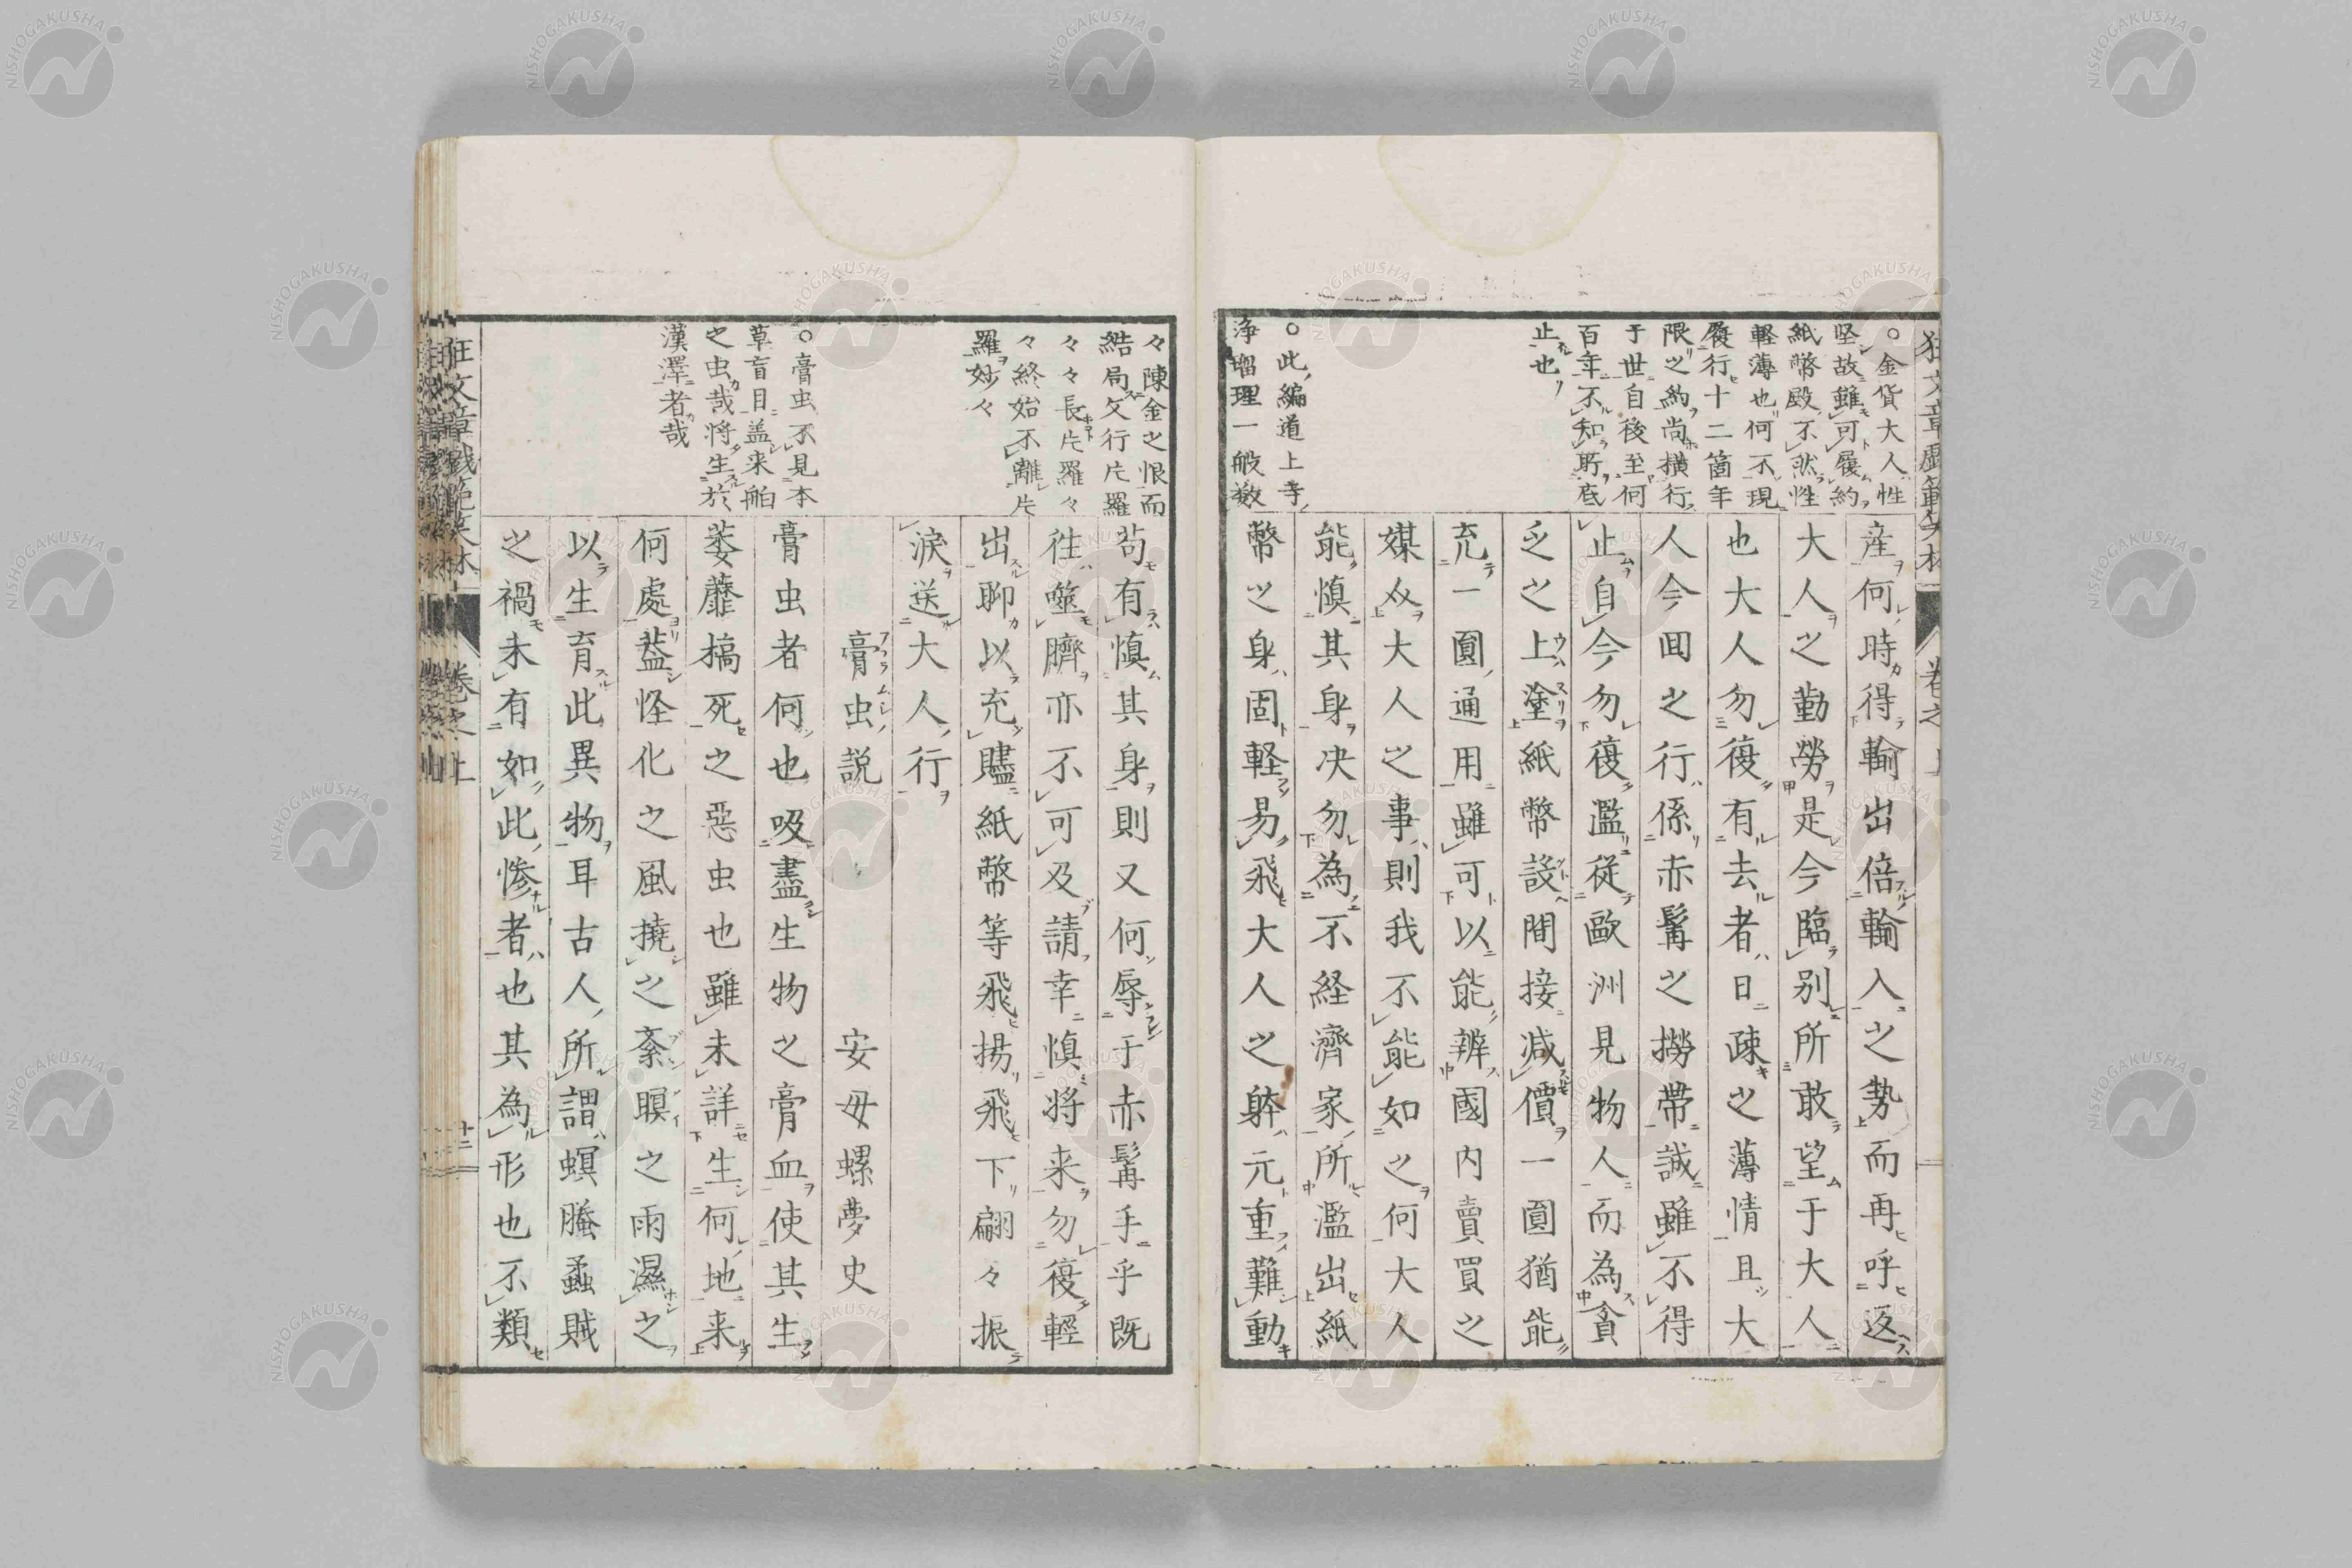 産何時得輸出倍輸入之勢而再呼返
大人之勤勞是今臨别所敢望于大人
也大人勿復有去者日疎之薄情且大
人今囬之行係赤髯之撈帶誠雖不得
止自今勿復濫従歐洲見物人而為貪
乏之上塗紙幣設間接減價一圓猶能
充一圓通用雖可以能辨國内賣買之
媒厽大人之事則我不能如之何大人
能慎其身决勿為不経濟家所濫出紙
幣之身固軽易飛大人之躰元重難動
○金貨大人性
堅故雖可履約
紙幣殿不然性
軽薄也何不現
履行十二箇年
限之約尚横行
于世自後至何
百年不知所底
止也
○此編道上寺
浄瑠理一般数
苟有慎其身則又何辱于赤髯手乎既
徃噬臍亦不可及請幸慎将来勿復輕
出聊以充贐紙幣等飛揚飛下翩々振
涙送大人行
膏虫説
安母螺夢史
膏虫者何也吸盡生物之膏血使其生
萎蘼槁死之惡虫也雖未詳生何地来
何處葢怪化之風撓之紊瞑之雨濕之
以生育此異物耳古人所謂螟螣蟊賊
之禍未有如此惨者也其為形也不類
々陳金之恨而
結局文行片羅
々々長片羅々
々終始不離片
羅妙々
○膏虫不見本
草盲目盖来舶
之虫哉将生於
漢澤者哉
狂文章戯範笑林
卷之上
十二